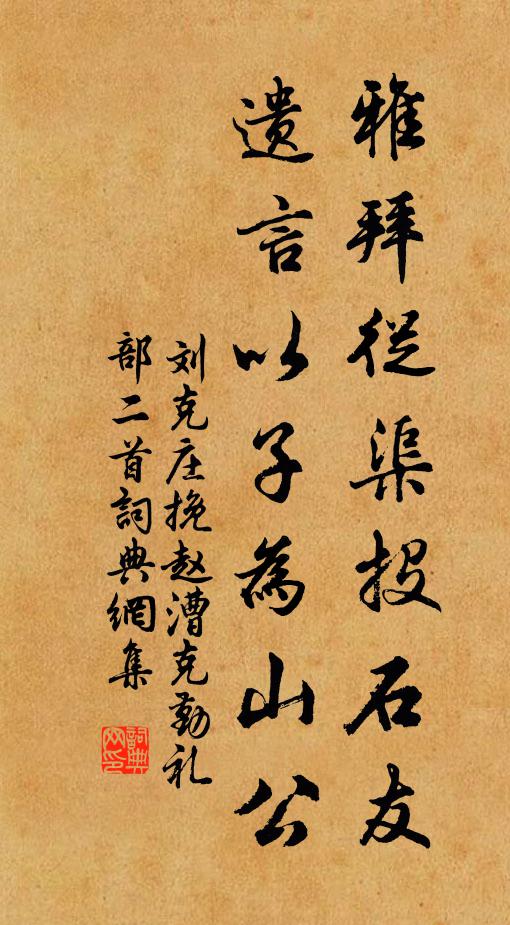 雅拜従渠投石友
遗言以子為山公
刘克庄挽赵漕克勤礼
部二首詞典網集
詞典
网印